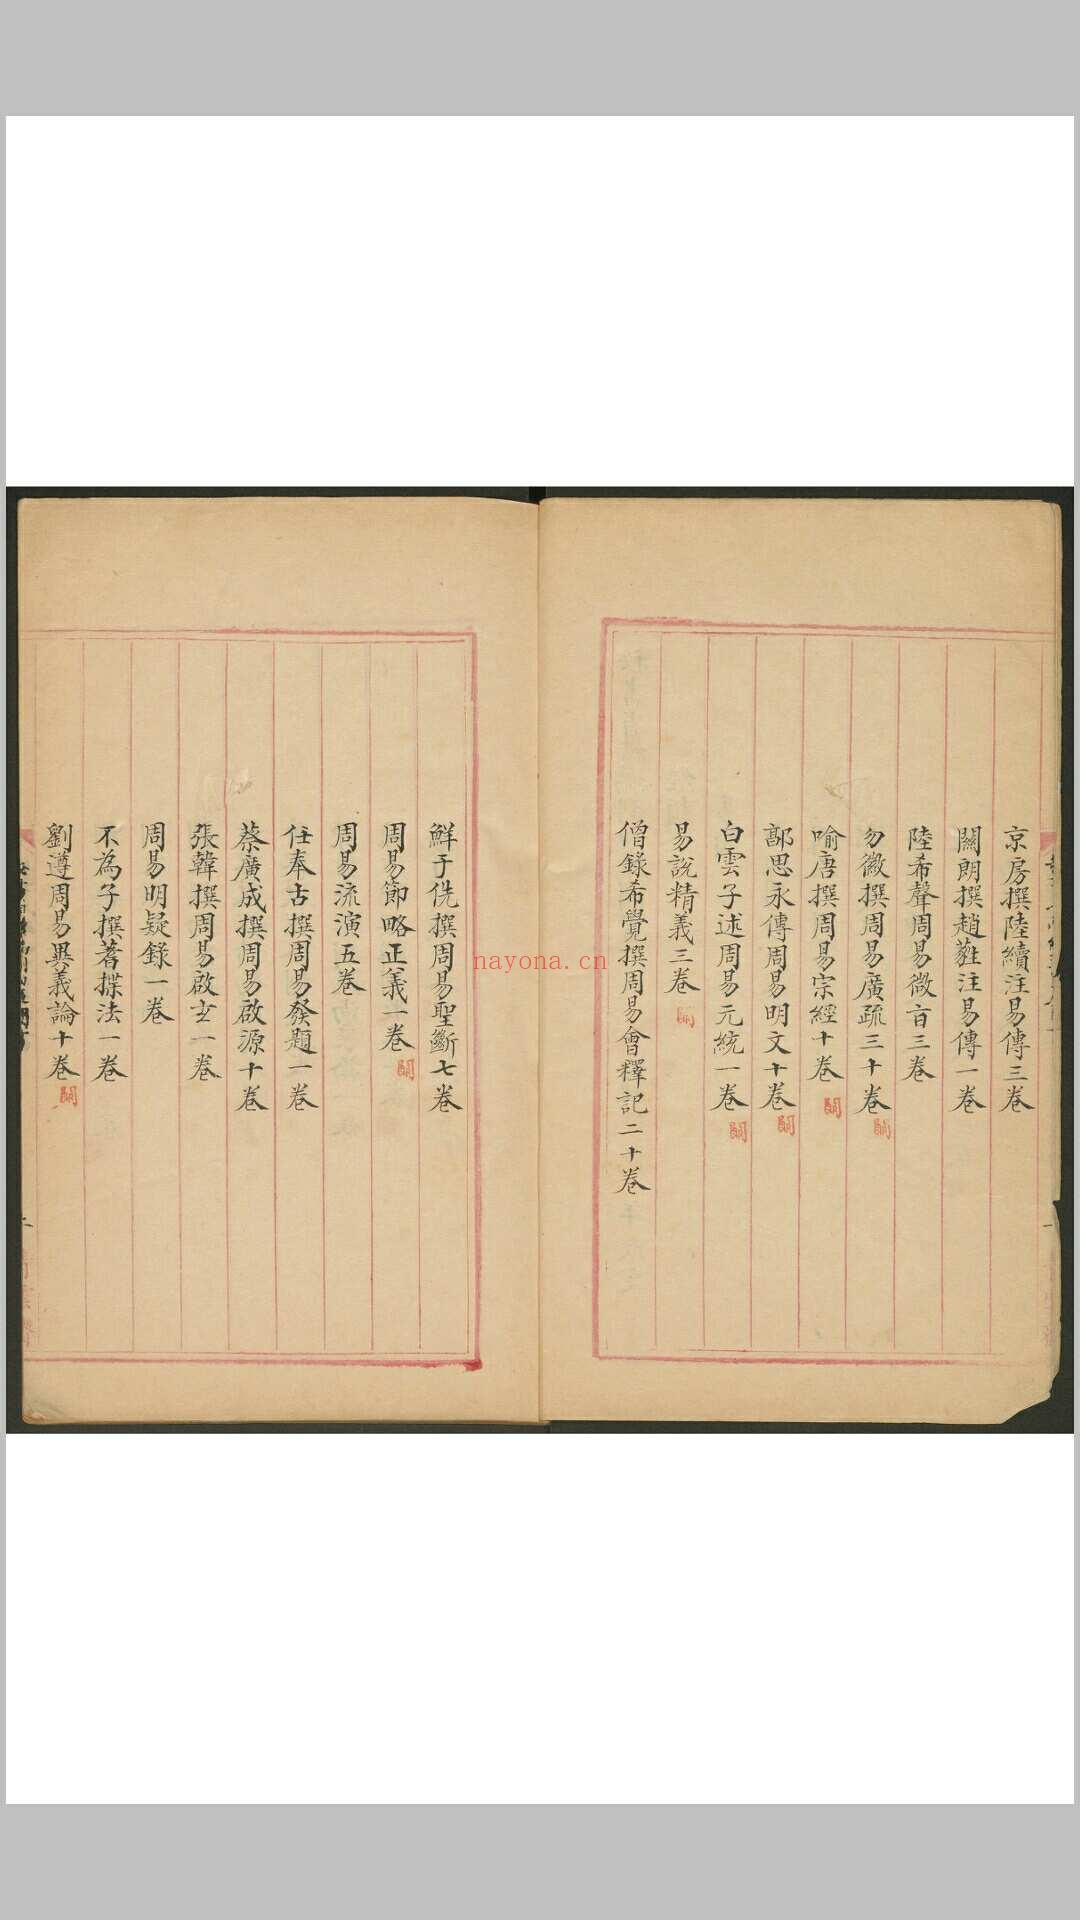 京房撰陸續注易傳三卷
關朗撰趙蕤注易傳一卷
陸希聲周易微旨三卷
勿微撰周易廣疏三十卷 闕
喻唐撰周易宗經十卷 闕
鄗思永傳周易明文十卷 闕
白雲子述周易元統一卷 闕
易說精義三卷 闕
僧錄希覺撰周易會釋記二十卷
鮮于侁撰周易聖斷七卷
周易節略正義一卷 闕
周易流演五卷
任奉古撰周易發題一卷
蔡廣成撰周易啟源十卷
張韓撰周易啟玄一卷
周易明疑錄一卷
不為子撰蓍揲法一卷
劉遵周易異義論十卷 闕
nayona.cn